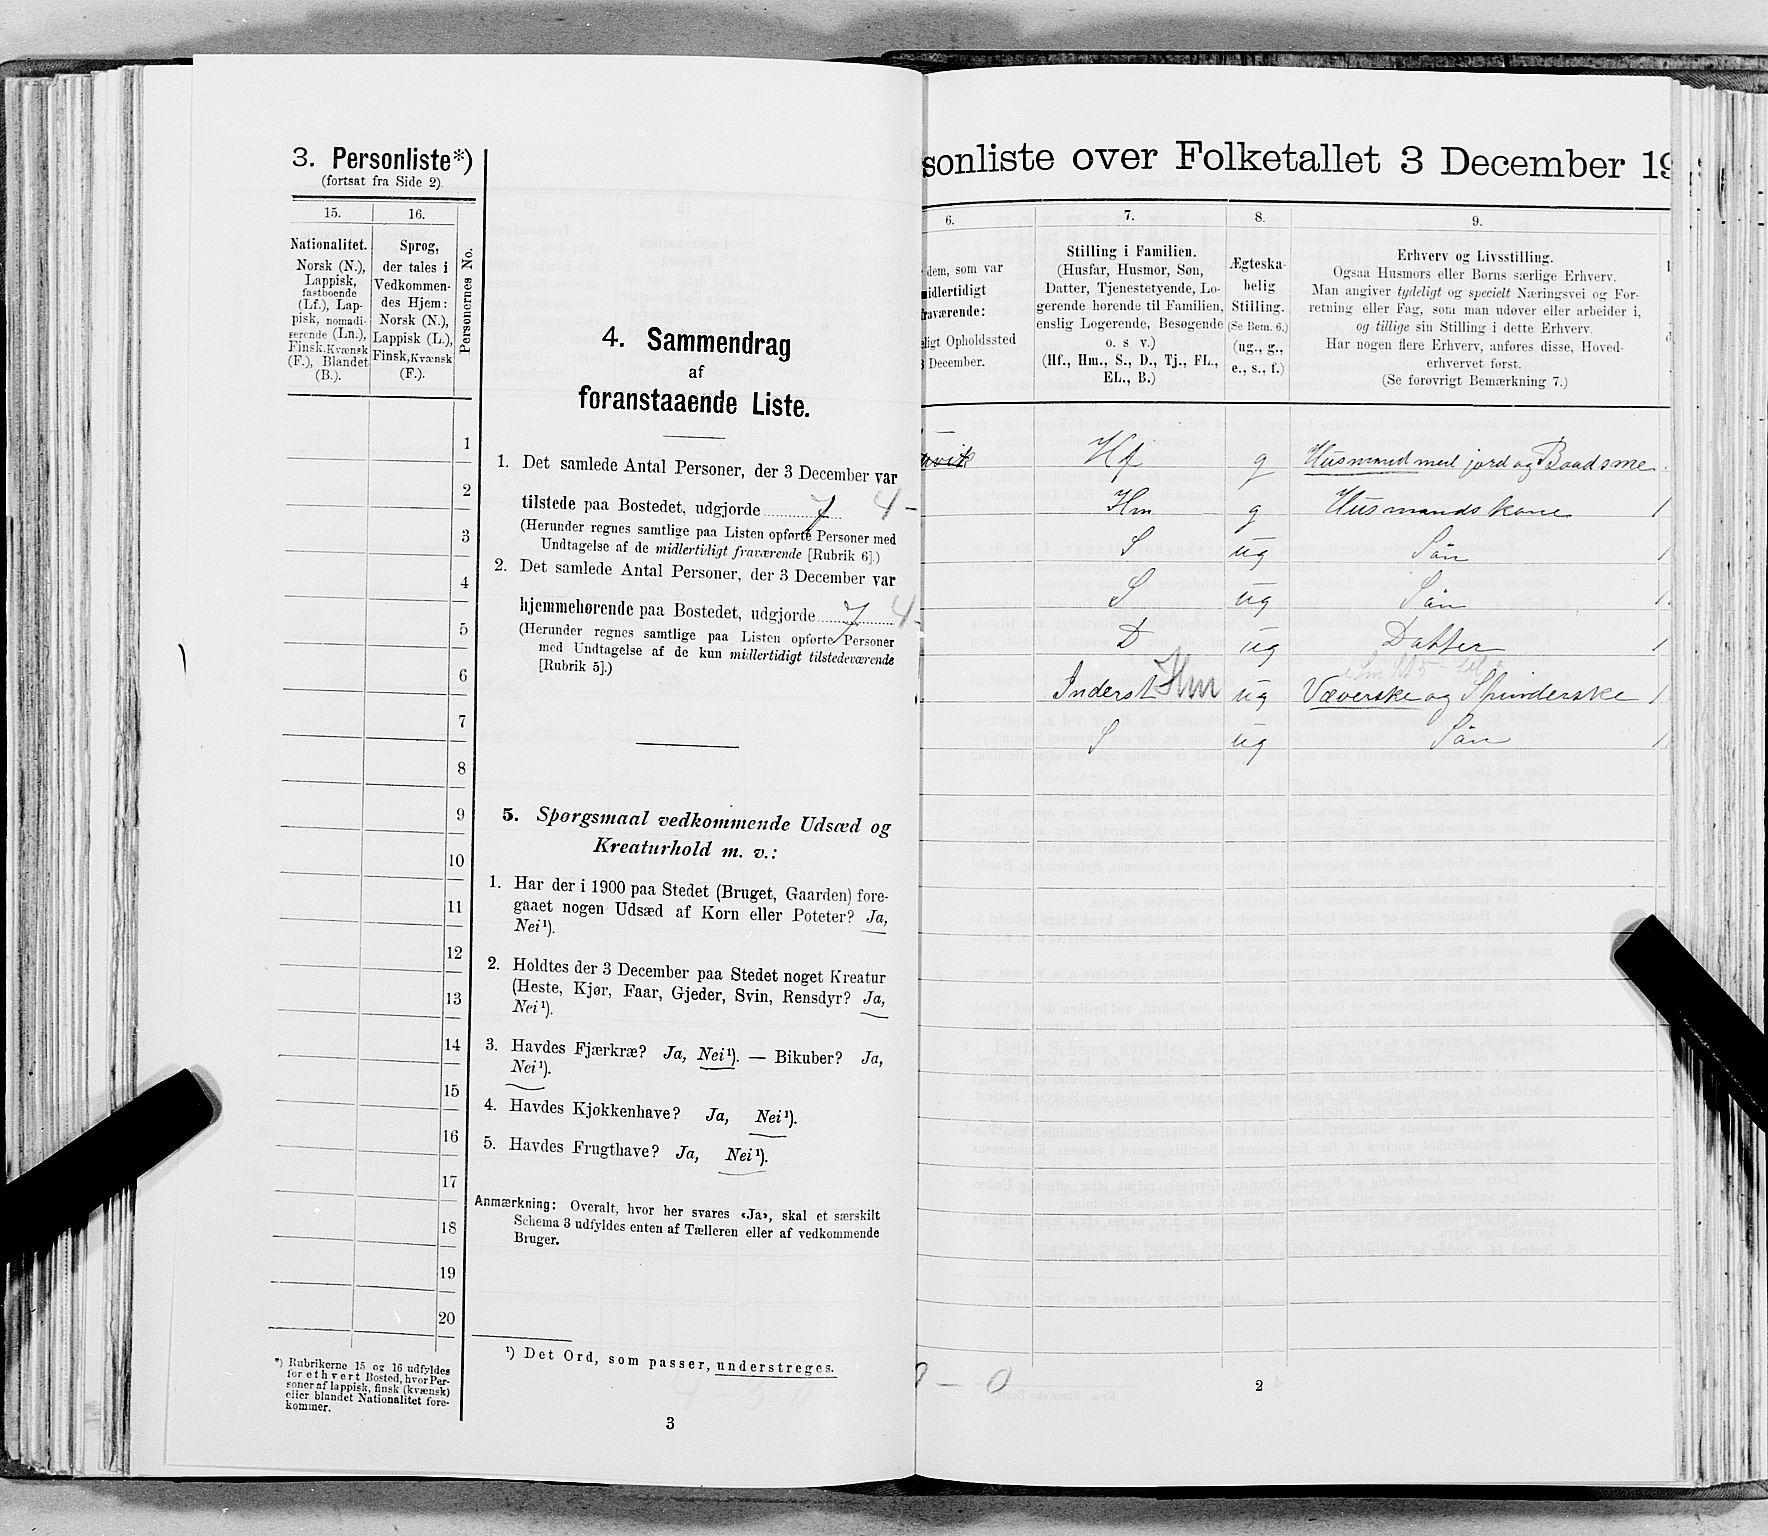 3. Personliste*)
(fortsat fra Side 2).
15.
16.
Nationalitet.
Norsk (N.),
Lappisk,
fastboende
(Lf.), Lap-
pisk, nomadi-
serende (Ln.),
Finsk, Kvænsk
(F.), Blandet
(B.).
Sprog,
der tales i
Vedkommen-
des Hjem:
Norsk (N.),
Lappisk (L.),
Finsk, Kvænsk
(F.).
Personernes No.
1
2
3
4
5
6
7
8
9
10
11
12
13
14
15
16
17
18
19
20
*) Rubrikerne 15 og 16 udfyldes
for ethvert Bosted, hvor Per-
soner af lappisk, finsk (kvænsk)
eller blandet Nationalitet fore-
kommer.
4. Sammendrag
af
foranstaaende Liste.
1. Det samlede Antal Personer, der 3 December var
tilstede paa Bostedet, udgjorde 7 4-
(Herunder regnes samtlige paa Listen opførte Personer med
Undtagelse af de midlertidigt fraværende [Rubrik 6].)
2. Det samlede Antal Personer, der 3 December var
hjemmehørende paa Bostedet, udgjorde 7 4-
(Herunder regnes samtlige paa Listen opførte Personer
med Undtagelse af de kun midlertidigt tilstedeværende
[Rubrik 5].)
5. Spørgsmaal vedkommende Udsæd og
Kreaturhold m. v.:
1. Har der i 1900 paa Stedet (Bruget, Gaarden) fore-
gaaet nogen Udsæd af Korn eller Poteter? Ja,
Nei¹).
2. Holdtes der 3 December paa Stedet noget Kreatur
(Heste, Kjør, Faar, Gjeder, Svin, Rensdyr? Ja,
Nei¹).
3. Havdes Fjærkræ? Ja, Nei¹). — Bikuber? Ja,
Nei¹).
4. Havdes Kjøkkenhave? Ja, Nei¹).
5. Havdes Frugthave? Ja, Nei¹).
Anmærkning: Overalt, hvor her svares «Ja», skal et særskilt
Schema 3 udfyldes enten af Tælleren eller af vedkommende
Bruger.
¹) Det Ord, som passer, understreges.
3
sonliste over Folketallet 3 December 19
6.
dem, som var
midlertidigt
fraværende:
ligt Opholdssted
3 December.
7.
Stilling i Familien.
(Husfar, Husmor, Søn,
Datter, Tjenestetyende, Lo-
gerende hørende til Familien,
enslig Logerende, Besøgende
o. s v.)
(Hf., Hm., S., D., Tj., FL.,
EL., B.)
8.
Ægteska-
belig
Stilling.
(Se Bem. 6.)
(ug., g.,
e., s., f.)
9.
Erhverv og Livsstilling.
Ogsaa Husmors eller Børns særlige Erhverv.
Man angiver tydeligt og specielt Næringsvei og For-
retning eller Fag, som man udøver eller arbeider i,
og tillige sin Stilling i dette Erhverv.
Har nogen flere Erhverv, anføres disse, Hoved-
erhvervet først.
(Se forøvrigt Bemærkning 7.)
vik Hf g Husmand med jord og Baadsme
Hm g Husmandskone 1
S ug Sön 1
S ug Sön 1
D ug Datter 1
Inderst Hm ug Væverske og Spinderske 1
S ug Sön 1
0 - 0
2